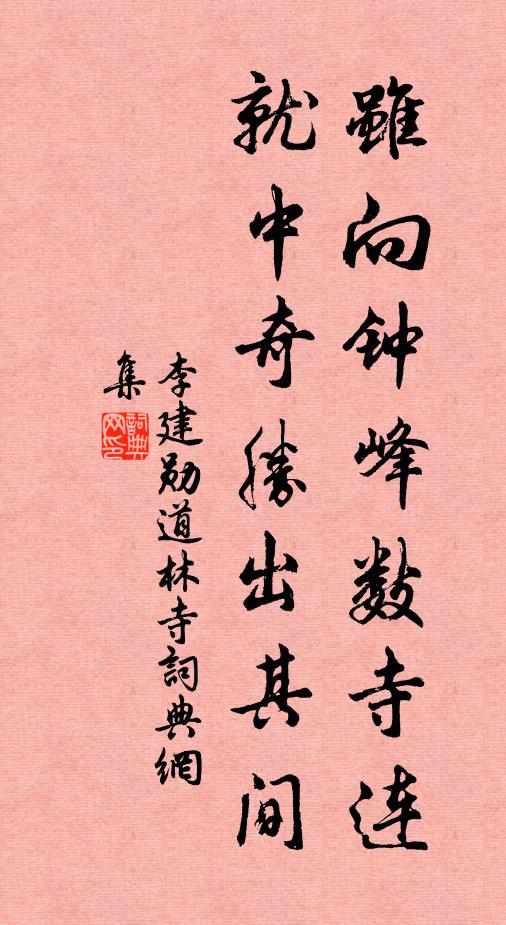 雖向钟峰数寺连
就中奇勝出其间
李建勋道林寺詞典網
集
詞典网印